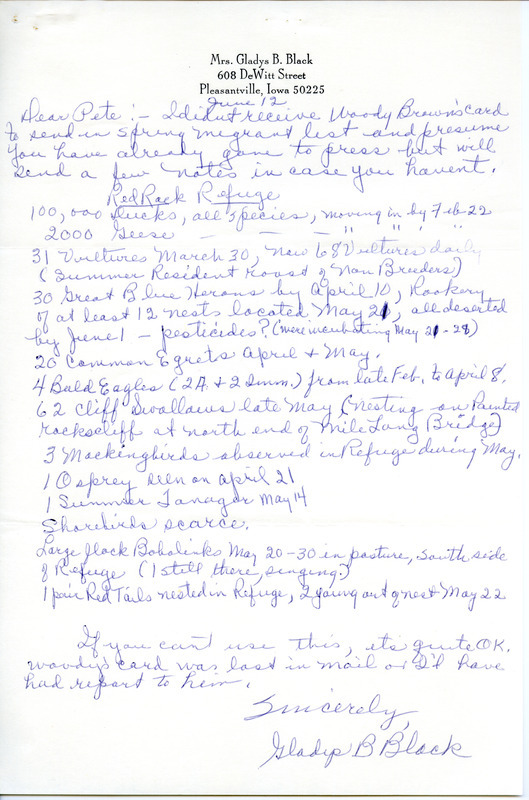 Mrs. Gladys B. Black
608 DeWitt Street
Pleasantville, Iowa 50225
June 12
Dear Pete:- I didnt receive Woody Brown's card
to send in spring migrant list and presume
you have already gone to press but will
send a few notes in case you havent.
Red Rock Refuge
100,000 ducks, all species, moving in by Feb 22
2000 Geese — — — " " " "
31 Vultures March 30, Now 68 Vultures daily
(Summer Resident roost of Non Breeders)
30 Great Blue Herons by April 10, Rookery
of at least 12 nests located May 21, all deserted
by June 1 - pesticides? (were incubating May 21-28)
20 Common Egrets April & May.
4 Bald Eagles (2A. & 2 Imm.) from late Feb. to April 8.
62 Cliff Swallows late May (nesting on Painted
rocks cliff at north end of Mile Long Bridge)
3 Mockingbirds observed in Refuge during May.
1 Osprey seen on April 21
1 Summer Tanager May 14
Shorebirds scarce.
Large flock Bobolinks May 20-30 in pasture, South side
of Refuge (1 still there, singing.)
1 pair Red Tails nested in Refuge, 2 young out of nest May 22
If you cant use this, its quite OK.
Woody's card was lost in mail or I'd have
had report to him.
Sincerely,
Gladys B Black